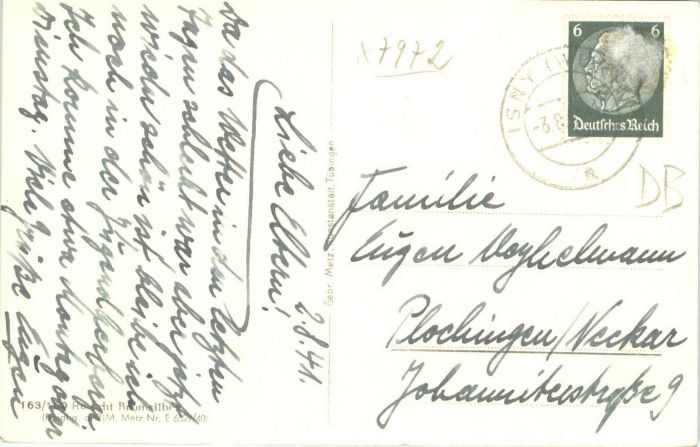 Liebe Eltern! 2.8.41.
Da das Wetter in den letzten
Tagen schlecht war aber jetzt
wieder schön ist bleibe ich
noch in der Jugendherberge.
Ich komme etwa Montag oder
Dienstag. Viele Grüße Eugen
x7972
6 6
Deutsches Reich
ISNY
DB
Familie
Eugen
Plochingen/Neckar
Johanniterstraße 9
Gebr. Metz, Kunstanstalt, Tübingen
163/
Metz Nr. E